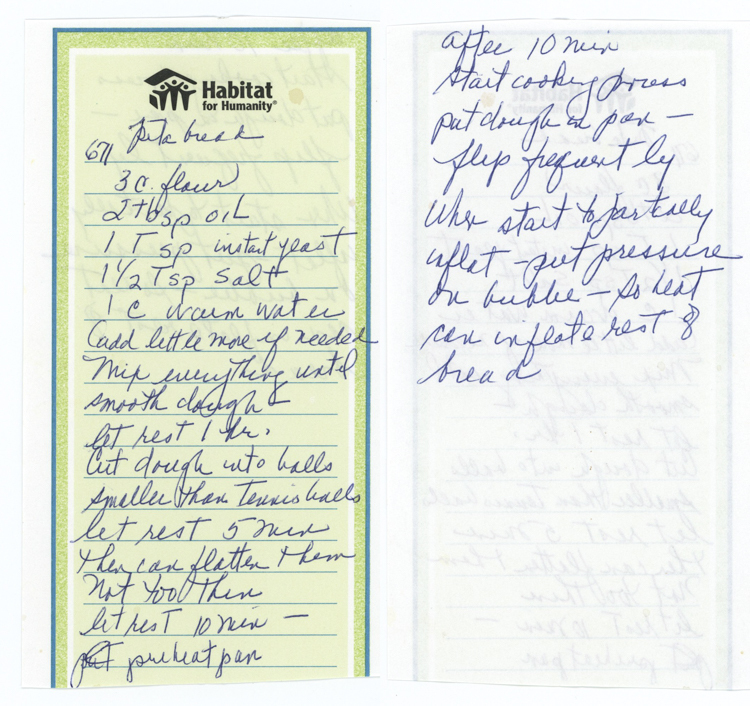 Habitat
for Humanity®
Pita bread
3 c. flour
2 tbsp oil
1 Tsp instant yeast
1 1/2 Tsp Salt
1 c warm water
(add little more if needed
Mix everything until
smooth dough -
let rest 1 hr.
Cut dough into balls
smaller than tennis balls
let rest 5 min
then can flatten them
Not too thin
let rest 10 min —
preheat pan
after 10 min
start cooking process
put dough in pan —
flip frequently
When start to partially
inflat - put pressure
on bubble - So heat
can inflate rest of
bread